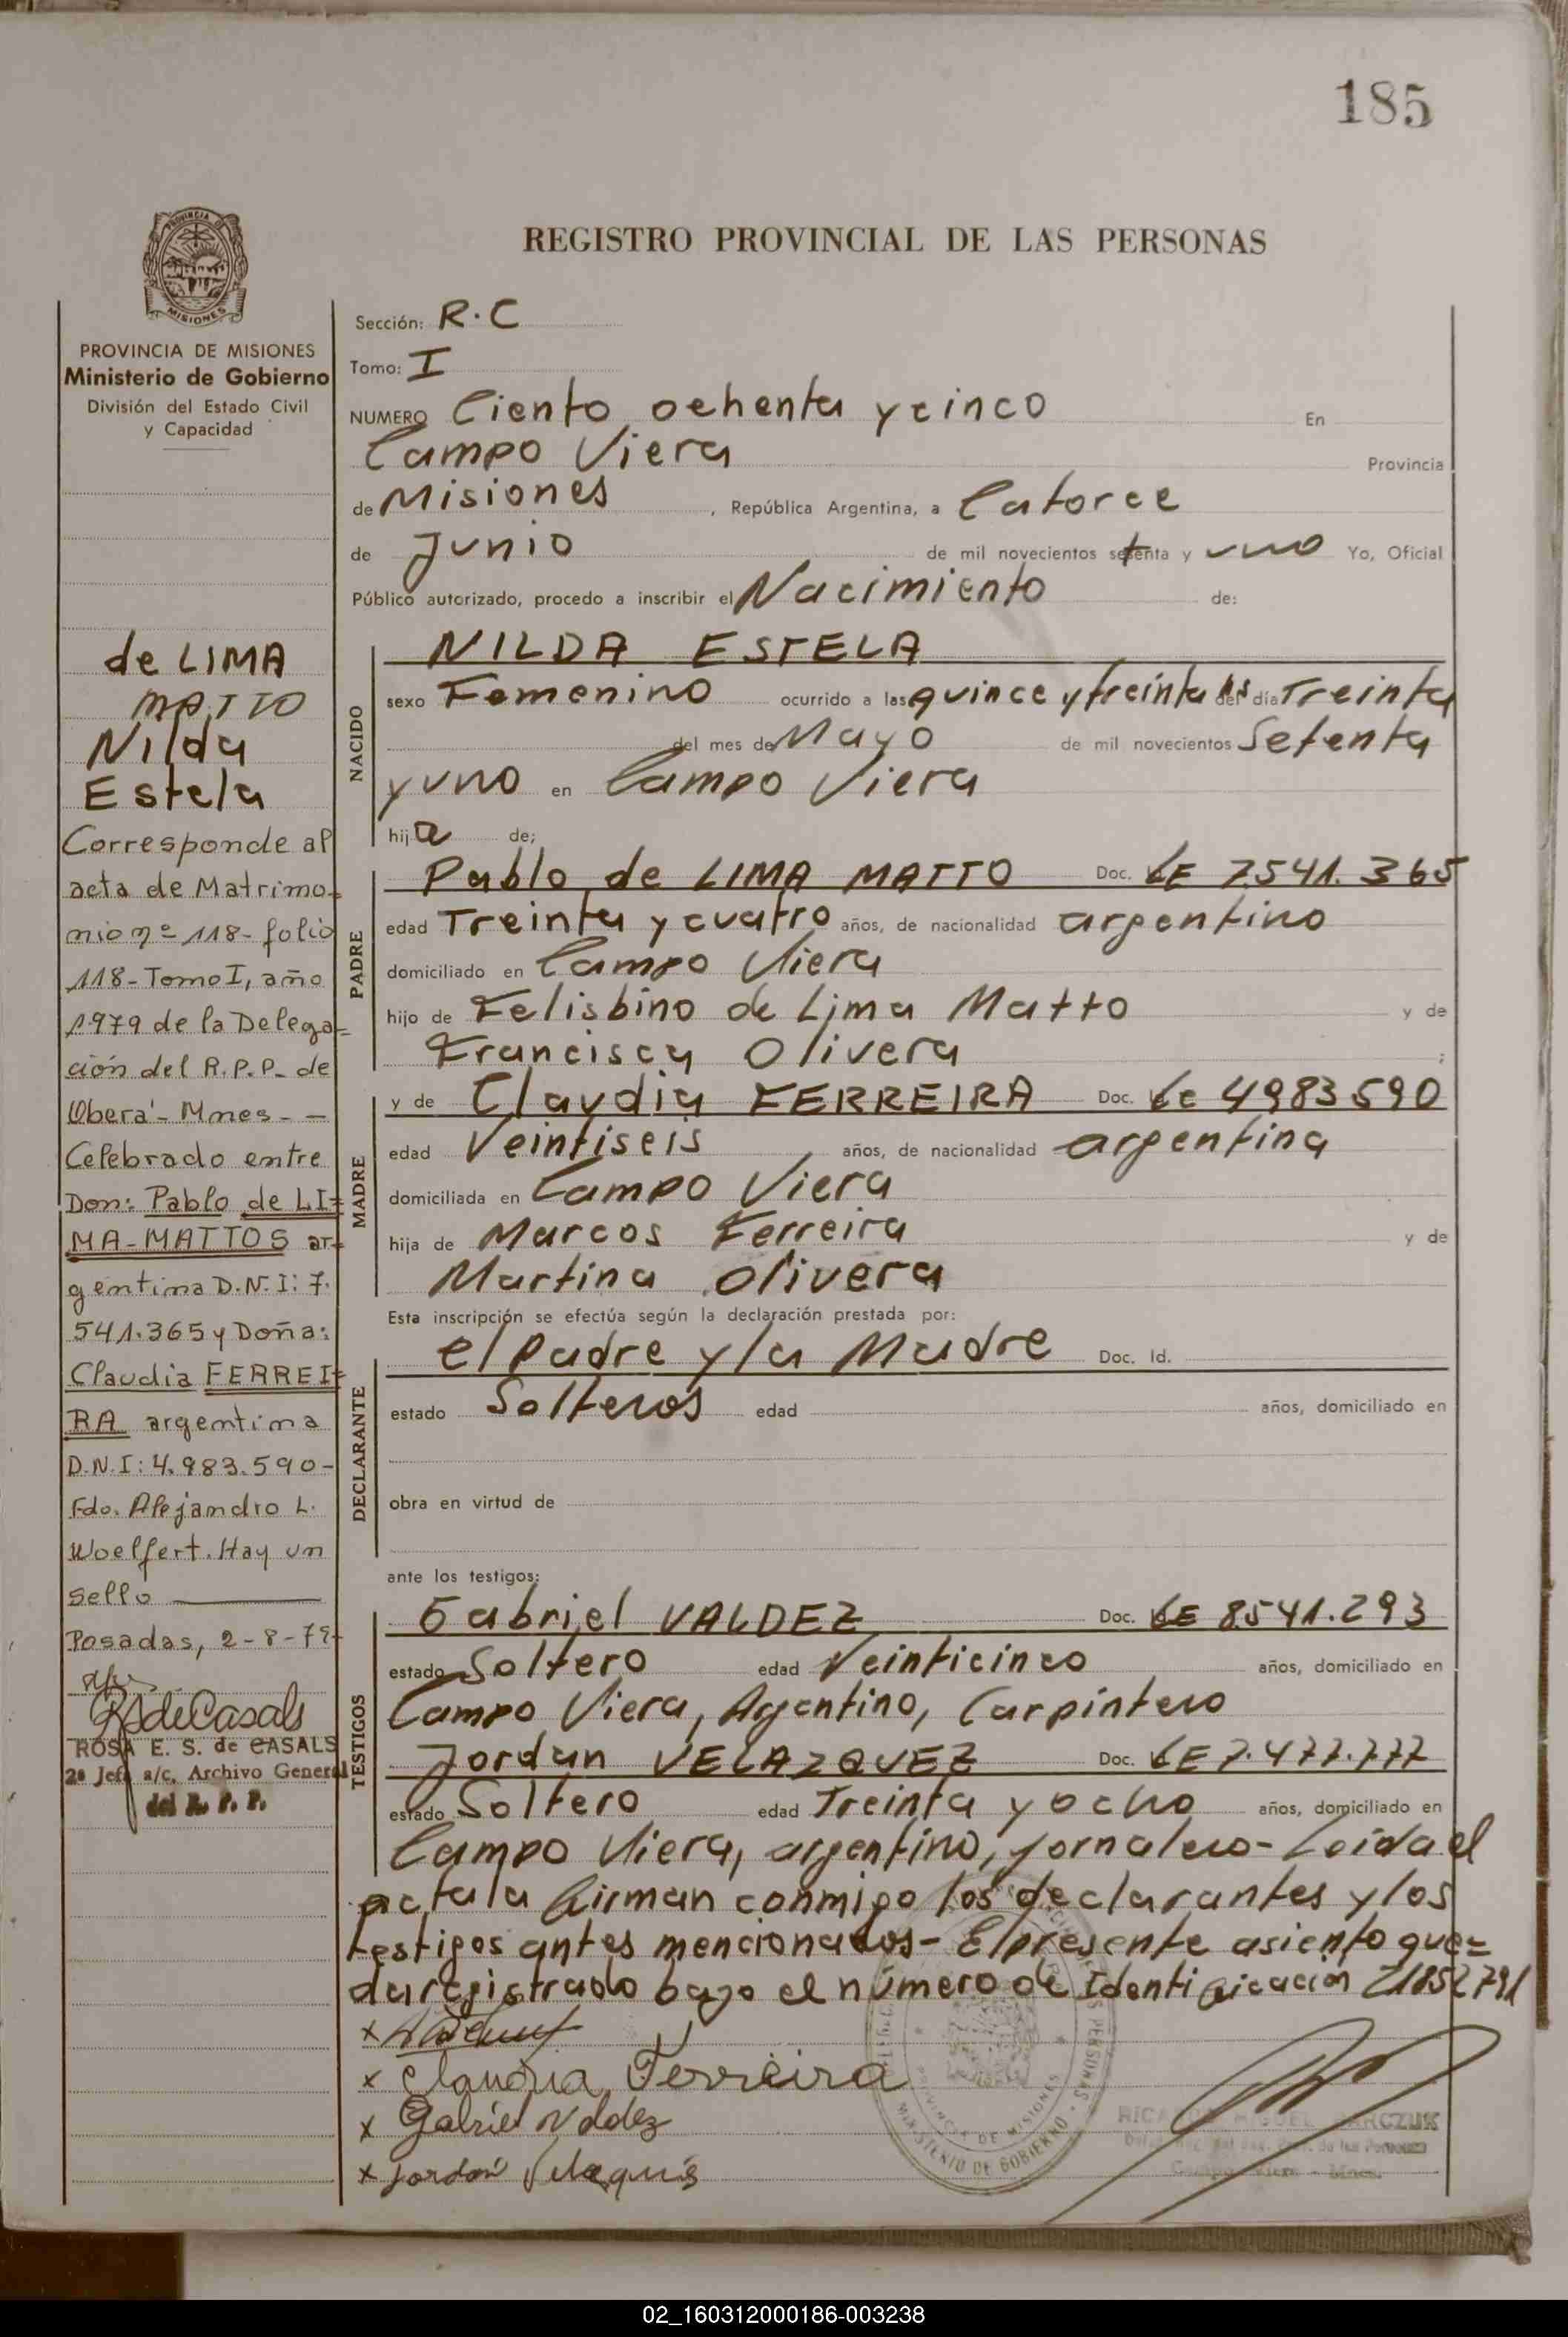 185
REGISTRO PROVINCIAL DE LAS PERSONAS
PROVINCIA
MISIONES
PROVINCIA DE MISIONES
Ministerio de Gobierno
División del Estado Civil
y Capacidad
de LIMA
MATTO
Nilda
Estela
Corresponde al
acta de Matrimo-
nio nº 118- folio
118- Tomo I, año
1979 de la Delega=
ción del R.P.P. de
Oberá- Mnes- -
Celebrado entre
Don: Pablo de LI=
MA-MATTOS ar-
gentina D.N.I: 7.
541.365 y Doña:
Claudia FERREI=
RA argentina
D.N.I: 4.983.590-
Fdo. Alejandro L.
Woelfert. Hay un
sello
Posadas, 2-8-79-
RSdeCasals
ROSA E. S. de CASALS
2ª Jefa a/c. Archivo General
del R. P. P.
Sección: R.C
Tomo: I
NUMERO Ciento ochenta y cinco En
Campo Viera Provincia
de Misiones, República Argentina, a Catorce
de Junio de mil novecientos setenta y uno Yo, Oficial
Público autorizado, procedo a inscribir el Nacimiento de:
NACIDO
NILDA ESTELA
sexo Femenino ocurrido a las quince y treinta hs del día Treinta
del mes de Mayo de mil novecientos Setenta
y uno en Campo Viera
hija de;
PADRE
Pablo de LIMA MATTO Doc. LE 7541.365
edad Treinta y cuatro años, de nacionalidad argentino
domiciliado en Campo Viera
hijo de Felisbino de Lima Matto y de
Francisca Olivera ;
MADRE
y de Claudia FERREIRA Doc. Lc 4983590
edad Veintiseis años, de nacionalidad argentina
domiciliada en Campo Viera
hija de Marcos Ferreira y de
Martina Olivera
Esta inscripción se efectúa según la declaración prestada por:
DECLARANTE
el Padre y la Madre Doc. Id.
estado Solteros edad años, domiciliado en
obra en virtud de
ante los testigos:
TESTIGOS
Gabriel VALDEZ Doc. LE 8541.293
estado Soltero edad Veinticinco años, domiciliado en
Campo Viera, Argentino, Carpintero
Jordan VELAZQUEZ Doc. LE 7.477.777
estado Soltero edad Treinta y ocho años, domiciliado en
Campo Viera, argentino, jornalero- Leída el
acta la firman conmigo los declarantes y los
testigos antes mencionados- El presente asiento que=
da registrado bajo el número de Identificación 21852791
x
x Claudia Ferreira
x Gabriel Valdez
x Jordan Velaquis
PROVINCIA DE MISIONES
MINISTERIO DE GOBIERNO
PERSONAS
MIGUEL
de las Personas
Campo Viera - Mnes.
02_160312000186-003238